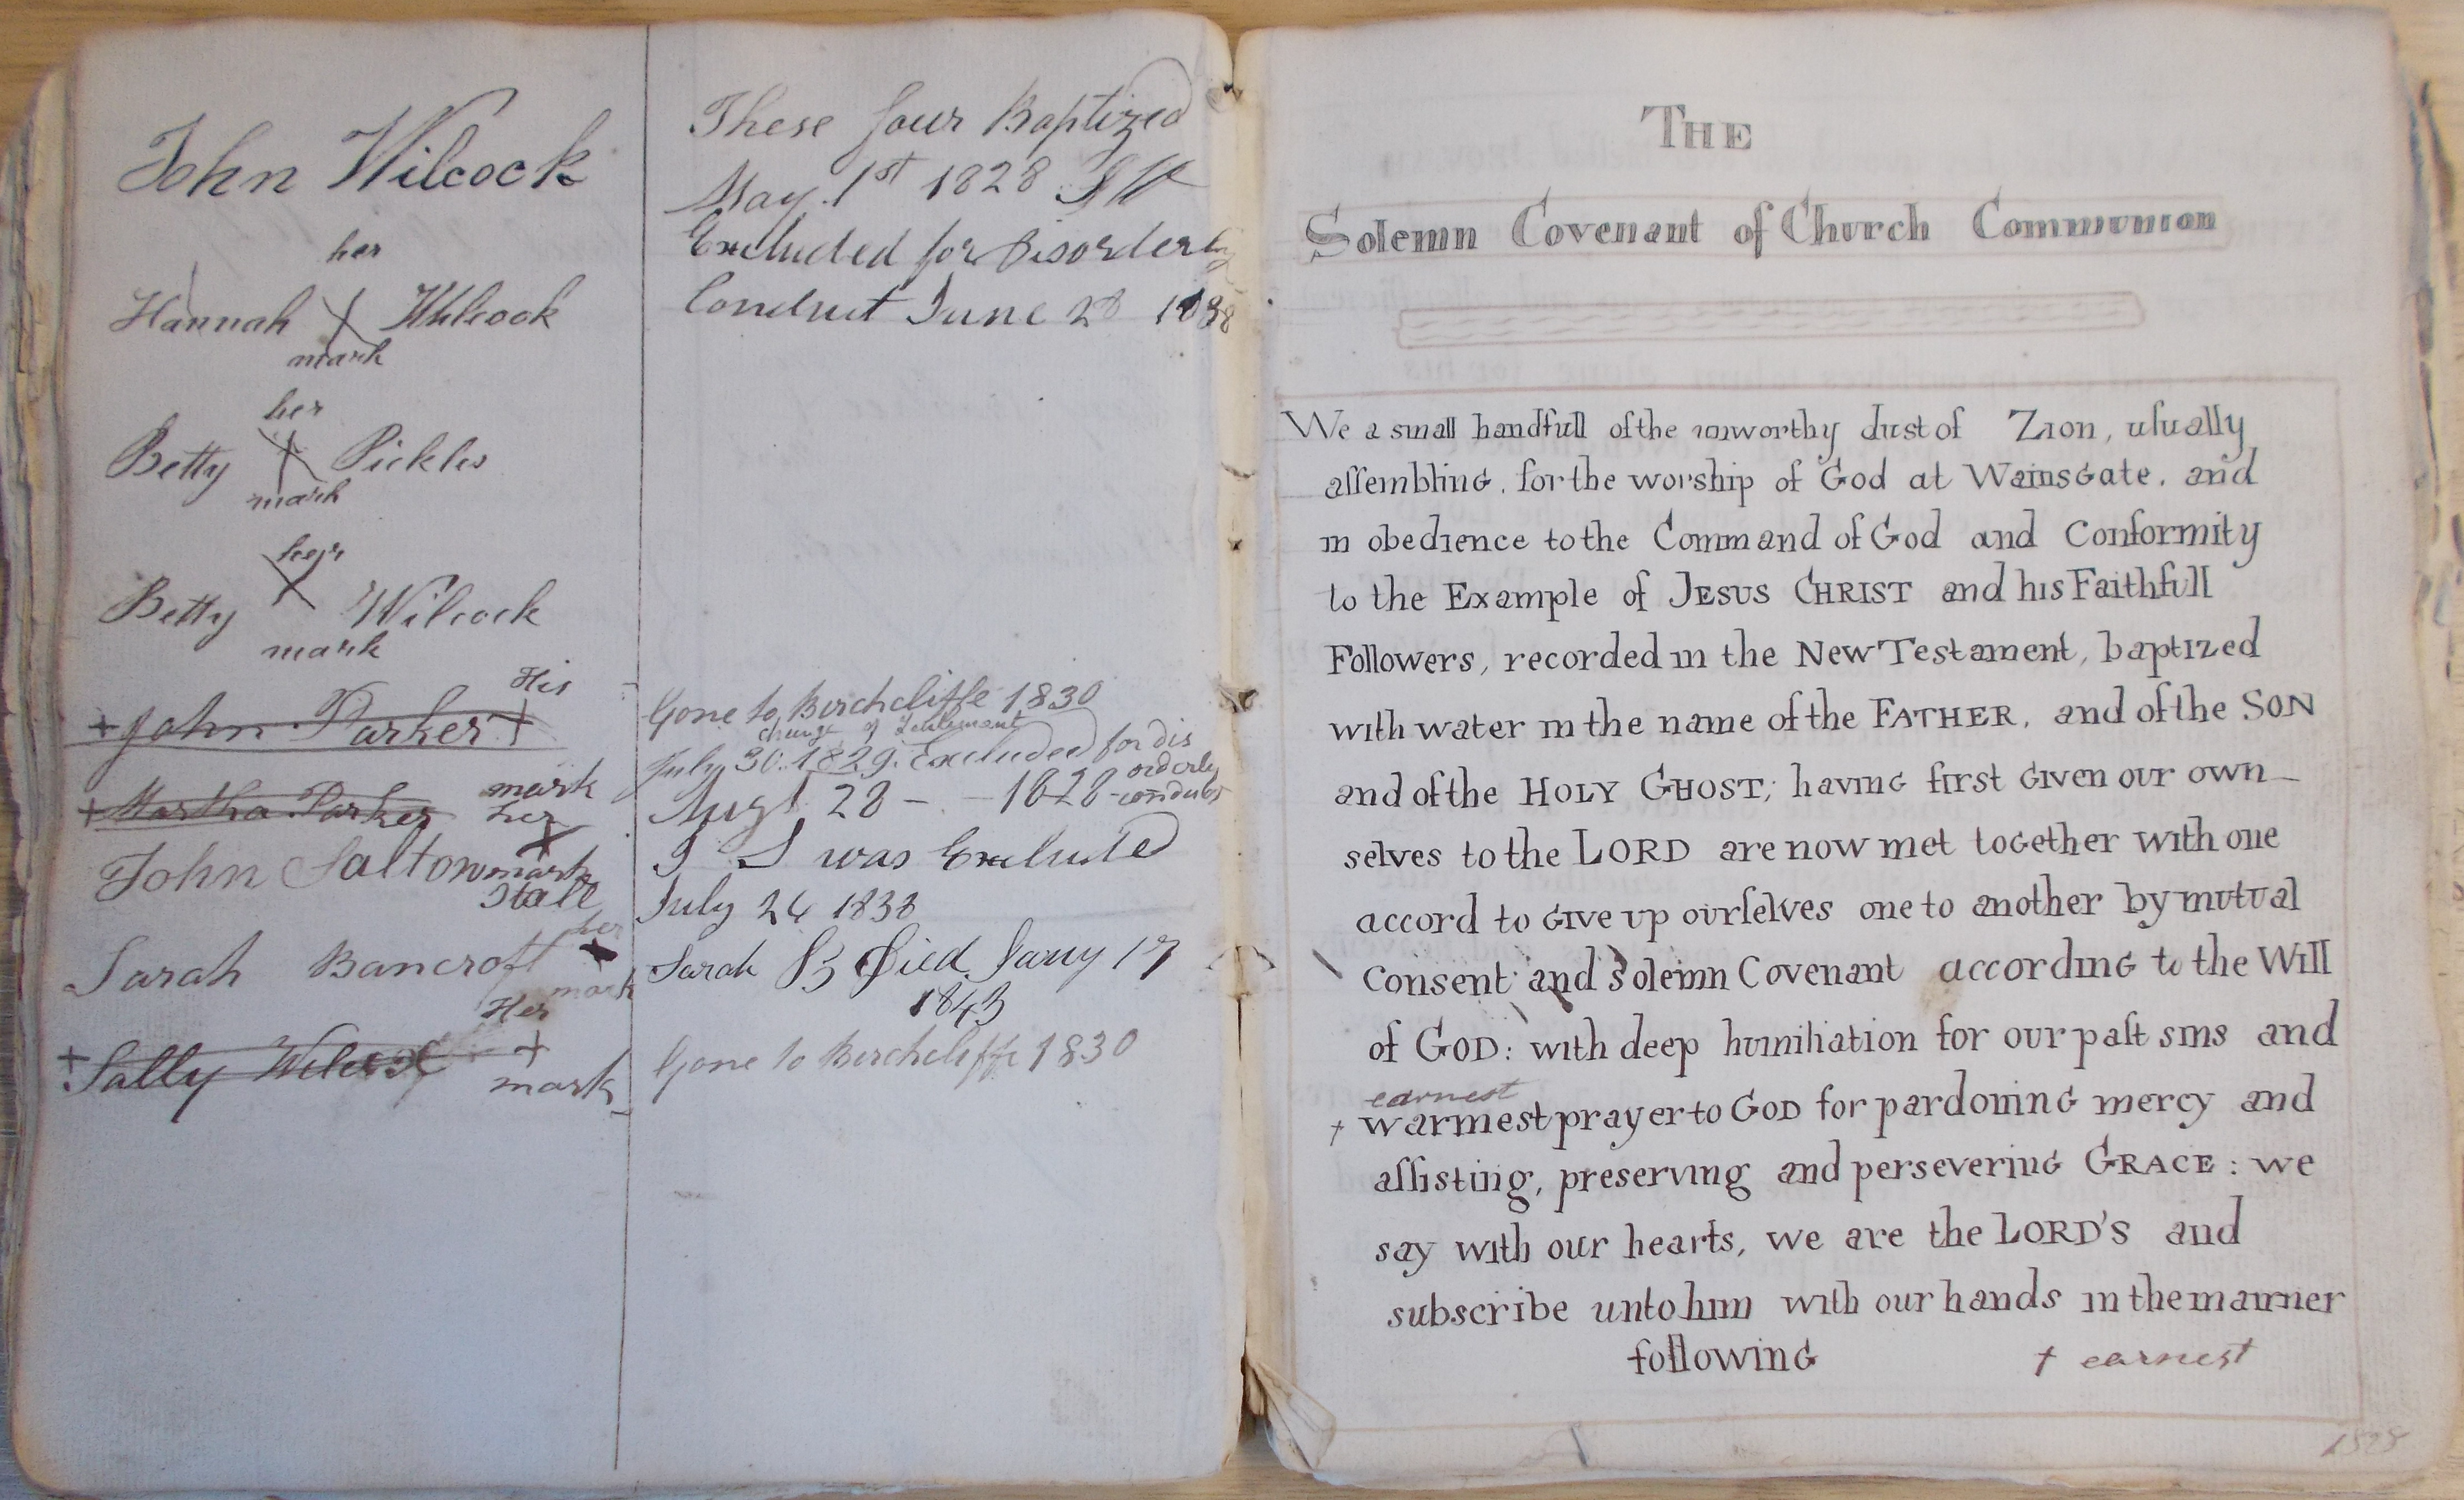 John Wilcock
her
Hannah X Wilcock
mark
her
Betty X Pickles
mark
her
Betty X Wilcock
mark
His
+ John Parker +
mark
+ Martha Parker her
X
John Saltonstall mark
her
Sarah Bancroft
mark
Her
+ Sally Wilcock +
mark
These four Baptized
May. 1st 1828
Excluded for Disorderly
Conduct June 28 1838
Gone to Birchcliffe 1830
change of
July 30. 1829. Excluded for dis
orderly
Augt 28 - - 1828 - conduct
I S was Excluded
July 26 1838
Sarah B Died Jany 17
1843
Gone to Birchcliffe 1830
THE
Solemn Covenant of Church Communion
We a small handfull of the unworthy dust of Zion, uſually
aſſembling, for the worship of God at Wainsgate, and
in obedience to the Command of God and Conformity
to the Example of JESUS CHRIST and his Faithfull
Followers, recorded in the New Testament, baptized
with water in the name of the FATHER, and of the SON
and of the HOLY GHOST; having first given our own
selves to the LORD are now met together with one
accord to give up ourſelves one to another by mutual
Consent and Solemn Covenant according to the Will
of GOD: with deep humiliation for our paſt sins and
earnest
† warmest prayer to GOD for pardoning mercy and
aſſisting, preserving and persevering GRACE: we
say with our hearts, we are the LORD'S and
subscribe unto him with our hands in the manner
following
† earnest